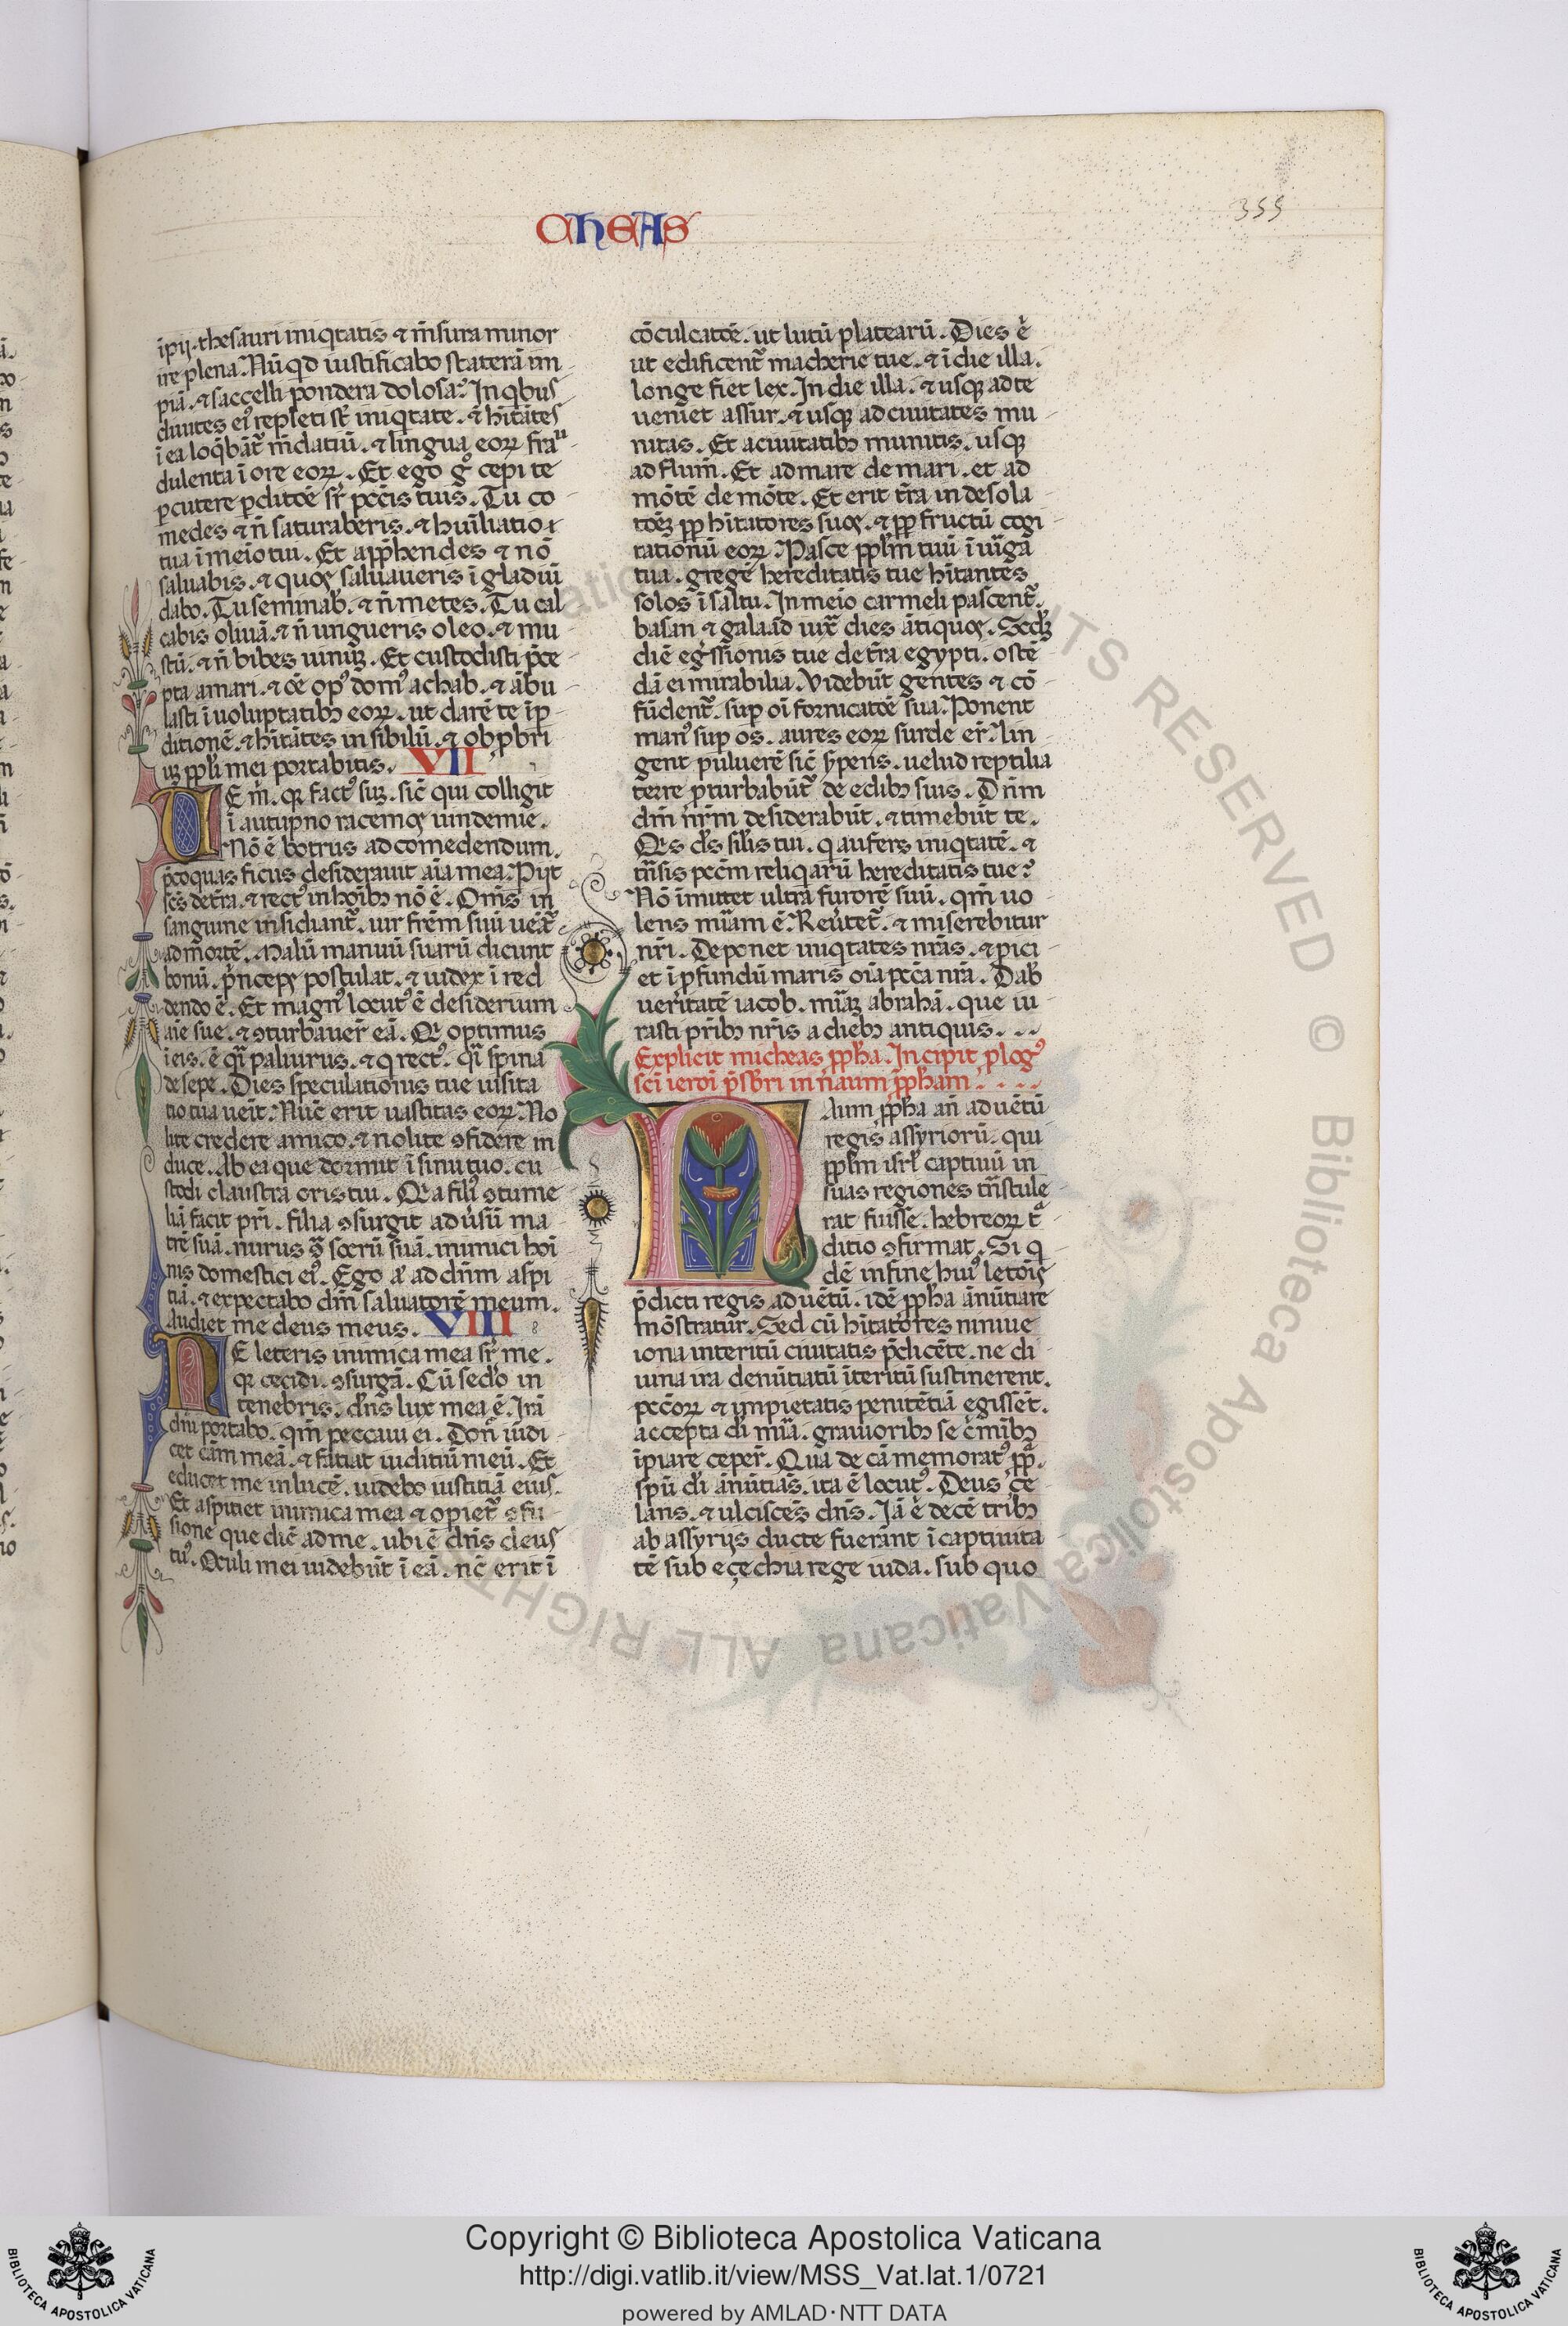 CHEAS
355
īpij. thesauri iniqtatis ⁊ m̄sura minor
ire plena. Nūqd iustificabo staterā im
piā. ⁊ saccelli pondera dolosa? In qbus
diuites eiꝰ repleti st̄ iniqtate. ⁊ hītātes
ī ea loq̄bāt̄ m̄datiū. ⁊ lingua eoꝝ frau
dulenta ī ore eoꝝ. Et ego gͦ cepi te
ꝑcutere ꝑditōe sr̄ pcc̄is tuis. Tu co
medes ⁊ n̄ saturaberis. ⁊ humīliatio
tua ī meio tui. Et appn̄hendes ⁊ nō
saluabis. ⁊ quos saluaueris ī gladiū
dabo. Tu seminab̄. ⁊ n̄ metes. Tu cal
cabis oliuā. ⁊ n̄ ungueris oleo. ⁊ mu
stū. ⁊ n̄ bibes uinuꝫ. Et custodisti p̄ce
pta amari. ⁊ oē opꝰ domꝰ achab. ⁊ ābu
lasti ī uoluptatibꝫ eoꝝ. ut darē te īp
ditionē. ⁊ hītātes in sibilū. ⁊ obꝓbri
uꝫ ppl̄i mei portabitis. VII
UE m̄. qꝛ factꝰ suꝫ. sic̄ qui colligit
ī autupno racemos uindemie.
Nō ē botrus ad comedendum.
p̄coquas ficus desiderauit aīa mea. Pijt
sc̄s de t̄ra. ⁊ rectꝰ in hoībꝫ nō ē. Om̄s in
sanguine insidiant̄. uir frēm suū uēat̄
ad mortē. Malū manuū suarū dicunt
bonū. pr̄nceps postulat. ⁊ iudex ī red
dendo ē. Et magnꝰ locutꝰ ē desiderium
aīe sue. ⁊ ꝯturbauer̄ eā. Qꝛ optimus
ī eis. ē qi paliurus. ⁊ q rectꝰ. qi spina
de sepe. Dies speculationis tue uisita
tio tua ueīt. Nūc erit uastitas eoꝝ. No
lite credere amico. ⁊ nolite ꝯfidere in
duce. Ab ea que dormit ī sinu tuo. cu
stodi claustra oris tui. Qꝛ a filiꝰ ꝯtume
liā facit pri. filia ꝯsurgit adūsū ma
trē suā. nurus ꝯ̄ socrū suā. inimici hoī
nis domestici eiꝰ. Ego aꝰ ad dn̄m aspi
tiā. ⁊ expectabo dm̄ saluatorē meum.
Audiet me deus meus. VIII 8
NE leteris inimica mea sr̄ me.
qꝛ cecidi. ꝯsurgā. Cū sedo in
tenebris. dn̄s lux mea ē. Irā
dn̄i portabo. qm̄ peccaui ei. Don̄ iudi
cet cām meā. ⁊ fatiat iuditiū meū. Et
educet me in lucē. uidebo iustitiā eius.
Et aspitiet inimica mea ⁊ opiet̄ ꝯfu
sione que diē ad me. ubi ē dn̄s deus
tuꝰ. Oculi mei uidebūt ī eā. nc̄ erit ī
cōculcatōe. ut lutū platearū. Dies ē
ut edificent̄ macherie tue. ⁊ ī die illa.
longe fiet lex. In die illa. ⁊ usqꝫ ad te
ueniet assur. ⁊ usqꝫ ad ciuitates mu
nitas. Et a ciuitatibꝫ munitis. usqꝫ
ad flum̄. Et ad mare de mari. et ad
mōtē de mōte. Et erit t̄ra in desola
tōeꝫ pp̄ hītatores suos. ⁊ pp̄ fructū cogi
tationū eoꝝ. Pasce ppl̄m tuū ī uīrga
tua. gregē hereditatis tue hītantēs
solos ī saltu. In meio carmeli pascent̄.
basan ⁊ galaad iux̄ dies ātiquos. Scdꝫ
diē egr̄ssionis tue de t̄ra egypti. ostē
dā ei mirabilia. Videbūt gentes ⁊ cō
fūdent̄. sup oī fornicatōe sua. Ponent
manꝰ sup os. aures eoꝝ surde er̄. Lin
gent puluerē sic̄ s̄pens. uelud reptilia
terre ꝑturbabūt̄ de edibꝫ suis. Dn̄m
dm̄ nr̄m desiderabūt. ⁊ timebūt te.
Qis ds̄ sil̄is tui. q aufers iniqtatē. ⁊
tn̄sis pcc̄m reliqarū hereditatis tue?
Nō īmittet ultra furorē suū. qm̄ uo
lens mīam ē. Reūtet̄. ⁊ miserebitur
nr̄i. Deponet iniqtates nr̄as. ⁊ pici
et ī ꝓfundū maris oīa pcc̄a nr̄a. Dab̄
ueritatē iacob. mīaꝫ abrahā. que iu
rasti prībꝫ nr̄is a diebꝫ antiquis.
Explicit micheas ppħa. Incipit plogꝰ
sci ieroī p̄sbr̄i in naum ppħam
NAum ppħa an̄ aduētū
regis assyriorū. qui
ppl̄m isrl̄ captiuū in
suas regiones tn̄stule
rat fuisse. hebreoꝝ t̄
ditio ꝯfirmat. Si q
dē in fine huiꝰ letōis
p̄dicti regis aduētū. idē ppħa ānūtiare
mōstratur. Sed cū hītatores niniue
iona interitū ciuitatis p̄dicēte. ne di
uina ira denūtiatū īteritū sustinerent.
pcc̄oꝝ ⁊ impietatis penitētiā egissēt.
accepta di mīa. grauioribꝫ se c̄mībꝫ
īpiare ceper̄. Qua de cā memoratꝰ pp̄ꝰ.
spū di ānūtiās. ita ē locutꝰ. Deus ce
lans. ⁊ ulciscēs dn̄s. Iā ē decē tribꝫ
ab assyrijs ducte fuerānt ī captiuita
tē sub eçechia rege iuda. sub quo
ALL RIGHTS RESERVED © Biblioteca Apostolica Vaticana
Copyright © Biblioteca Apostolica Vaticana
http://digi.vatlib.it/view/MSS_Vat.lat.1/0721
powered by AMLAD·NTT DATA
BIBLIOTECA APOSTOLICA VATICANA
BIBLIOTECA APOSTOLICA VATICANA